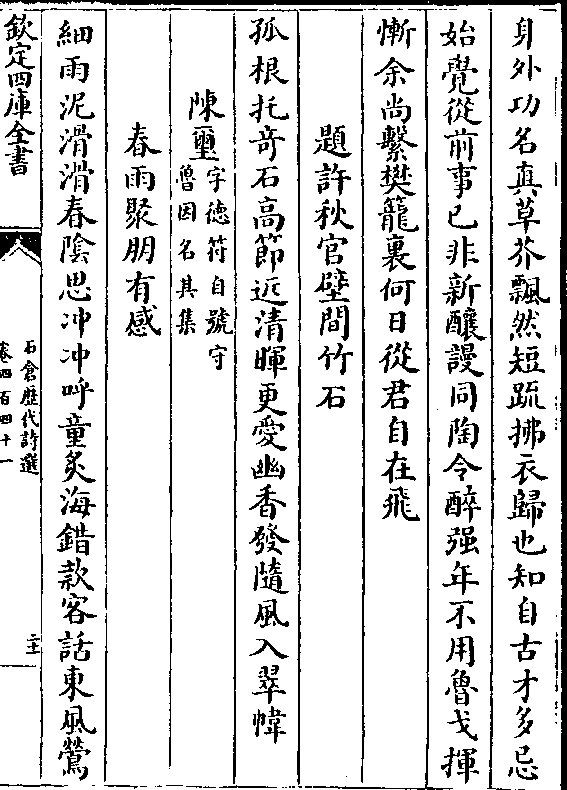 身外功名真草芥飄然短疏拂衣歸也知自古才多忌
始覺從前事已非新釀謾同陶令醉强年不用魯戈揮
慚余尚繫樊籠裏何日從君自在飛
題許秋官壁間竹石
孤根托竒石高節近清暉更愛幽香發隨風入翠幃
陳璽字德符自號守
魯因名其集
春雨聚朋有感
細雨泥滑滑春陰思冲冲呼童炙海錯款客話東風鶯
欽定四庫全書
石倉歷代詩選
卷四百四十一